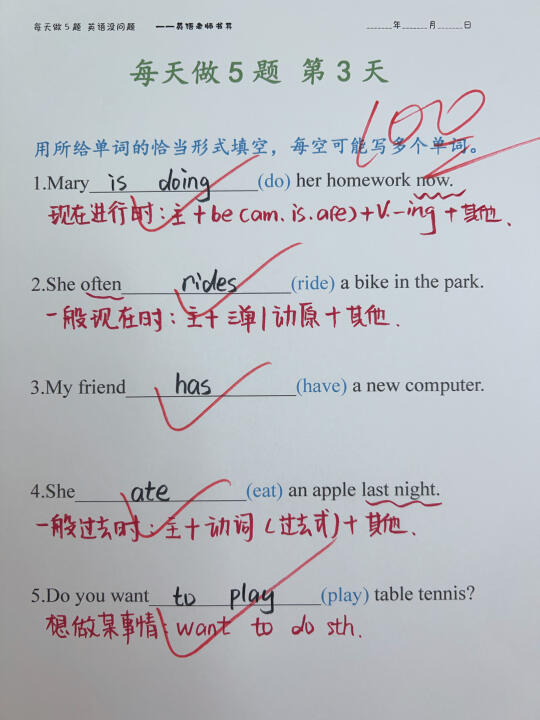 每天做5题 英语没问题 ——英语老师书写 ______年______月______日
每天做5题 第3天
100
用所给单词的恰当形式填空，每空可能写多个单词。
1.Mary is doing (do) her homework now.
现在进行时：主+be(am.is.are)+V.-ing+其他.
2.She often rides (ride) a bike in the park.
一般现在时：主+三单|动原+其他.
3.My friend has (have) a new computer.
4.She ate (eat) an apple last night.
一般过去时：主+动词(过去式)+其他.
5.Do you want to play (play) table tennis?
想做某事情：want to do sth.